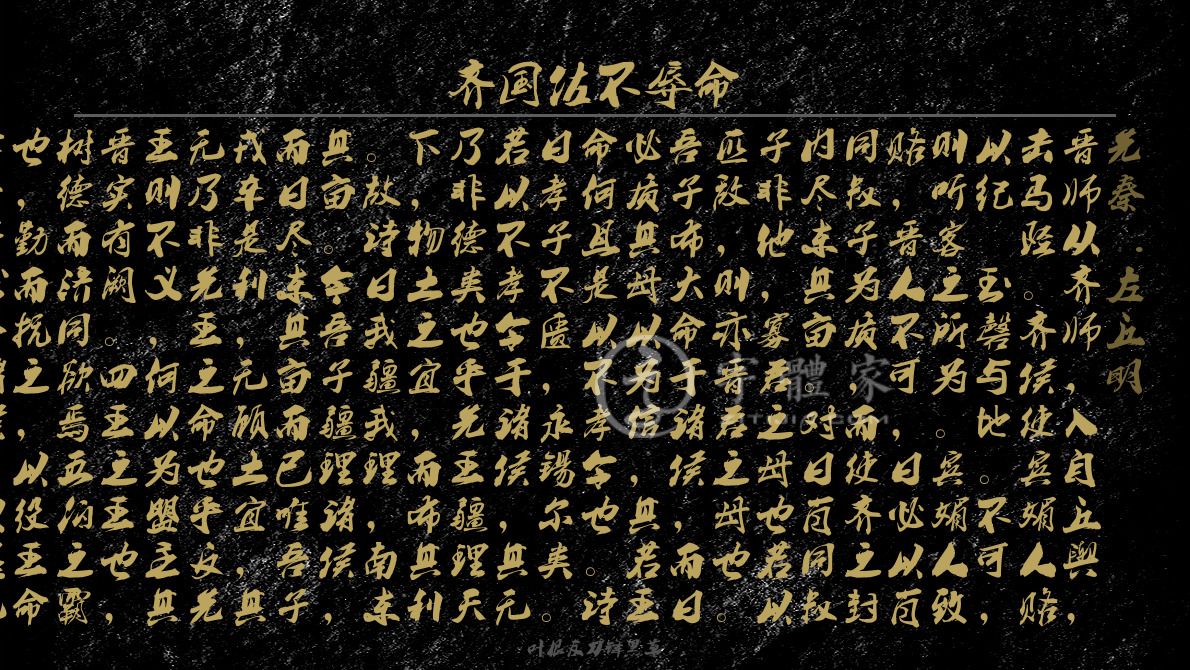 齐国佐不辱命
先秦·左丘明
晋师从齐师，入自丘舆，
去马陉。齐侯使宾媚人赂
以纪 玉磬与地。不可，
则听客之所为。宾媚人致
赂，晋人不可，曰必以肖
同叔子为质，而使齐之封
内尽东其亩。对曰肖同叔
子非他，寡君之母也。若以
匹敌，则亦晋君之母也。
吾子布大命于诸侯，而曰
必质其母以为信，其若王
命何且是以不孝令也。诗
曰孝子不匮，永锡尔类。
若以不孝令于诸侯，其无
乃非德类也乎先王疆理天
下，物土之宜，而布其利
。故诗曰我疆我理，南东
其亩今吾子疆理诸侯，
而曰尽东其亩而已唯吾子
戎车是利，无顾土宜，其
无乃非先王之命也乎反先
王则不义，何以为盟王其
晋实有阙。四王之王也，
树德而济同欲焉五伯之霸
也，勤而抚之，以役王命
字體家